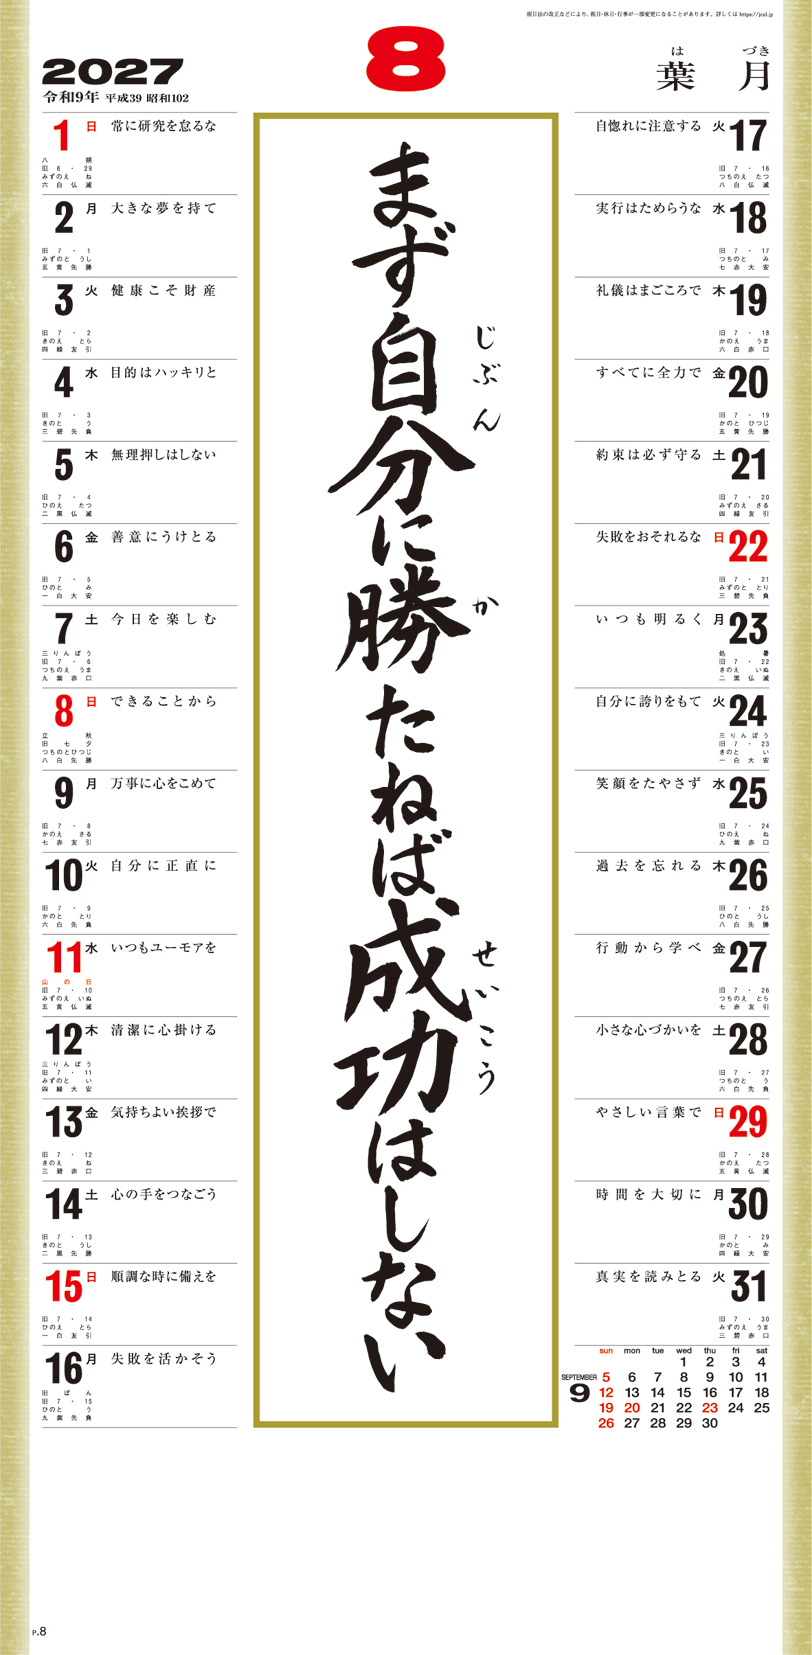 祝日法の改正などにより、祝日・休日・行事が一部変更になることがあります。詳しくは https://jcal.jp
2027
令和9年 平成39 昭和102
8
は づき
葉月
まず自分に勝たねば成功はしない
じぶん
か
せいこう
1 日 常に研究を怠るな
八朔
旧6・29
みずのえ ね
六白仏滅
2 月 大きな夢を持て
旧7・1
みずのと うし
五黄先勝
3 火 健康こそ財産
旧7・2
きのえ とら
四緑友引
4 水 目的はハッキリと
旧7・3
きのと う
三碧先負
5 木 無理押しはしない
旧7・4
ひのえ たつ
二黒仏滅
6 金 善意にうけとる
旧7・5
ひのと み
一白大安
7 土 今日を楽しむ
三りんぼう
旧7・6
つちのえ うま
九紫赤口
8 日 できることから
立秋
旧七夕
つちのとひつじ
八白先勝
9 月 万事に心をこめて
旧7・8
かのえ さる
七赤友引
10 火 自分に正直に
旧7・9
かのと とり
六白先負
11 水 いつもユーモアを
山の日
旧7・10
みずのえ いぬ
五黄仏滅
12 木 清潔に心掛ける
三りんぼう
旧7・11
みずのと い
四緑大安
13 金 気持ちよい挨拶で
旧7・12
きのえ ね
三碧赤口
14 土 心の手をつなごう
旧7・13
きのと うし
二黒先勝
15 日 順調な時に備えを
旧7・14
ひのえ とら
一白友引
16 月 失敗を活かそう
旧ぼん
旧7・15
ひのと う
九紫先負
自惚れに注意する 火 17
旧7・16
つちのえ たつ
八白仏滅
実行はためらうな 水 18
旧7・17
つちのと み
七赤大安
礼儀はまごころで 木 19
旧7・18
かのえ うま
六白赤口
すべてに全力で 金 20
旧7・19
かのと ひつじ
五黄先勝
約束は必ず守る 土 21
旧7・20
みずのえ さる
四緑友引
失敗をおそれるな 日 22
旧7・21
みずのと とり
三碧先負
いつも明るく 月 23
処暑
旧7・22
きのえ いぬ
二黒仏滅
自分に誇りをもて 火 24
三りんぼう
旧7・23
きのと い
一白大安
笑顔をたやさず 水 25
旧7・24
ひのえ ね
九紫赤口
過去を忘れる 木 26
旧7・25
ひのと うし
八白先勝
行動から学べ 金 27
旧7・26
つちのえ とら
七赤友引
小さな心づかいを 土 28
旧7・27
つちのと う
六白先負
やさしい言葉で 日 29
旧7・28
かのえ たつ
五黄仏滅
時間を大切に 月 30
旧7・29
かのと み
四緑大安
真実を読みとる 火 31
旧7・30
みずのえ うま
三碧赤口
SEPTEMBER
9
sun mon tue wed thu fri sat
1 2 3 4
5 6 7 8 9 10 11
12 13 14 15 16 17 18
19 20 21 22 23 24 25
26 27 28 29 30
P.8